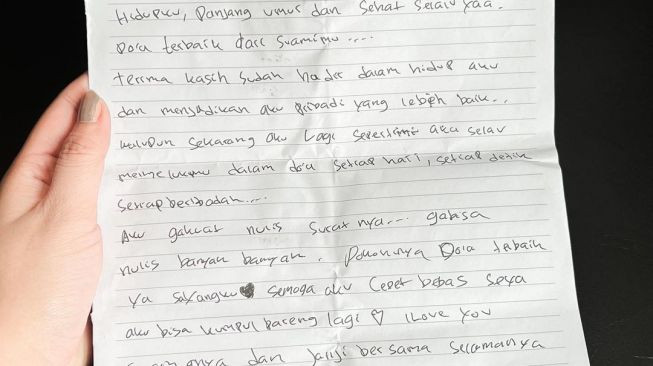 Hidupku, Panjang umur dan Sehat Selalu yaa.
Do'a terbaik dari Suamimu ....
terima kasih sudah hadir dalam hidup aku
dan menjadikan aku Pribadi yang lebih baik..
walupun sekarang aku Lagi Seperti ini aku selalu
memelukmu dalam do'a setiap hari, setiap detik
Setiap beribadah...
Aku gakuat nulis Surat nya... gabisa
nulis banyak banyak. Pokoknya Do'a terbaik
ya sayangku semoga aku Cepet bebas
aku bisa kumpul bareng lagi I Love You
dan Janji bersama Selamanya